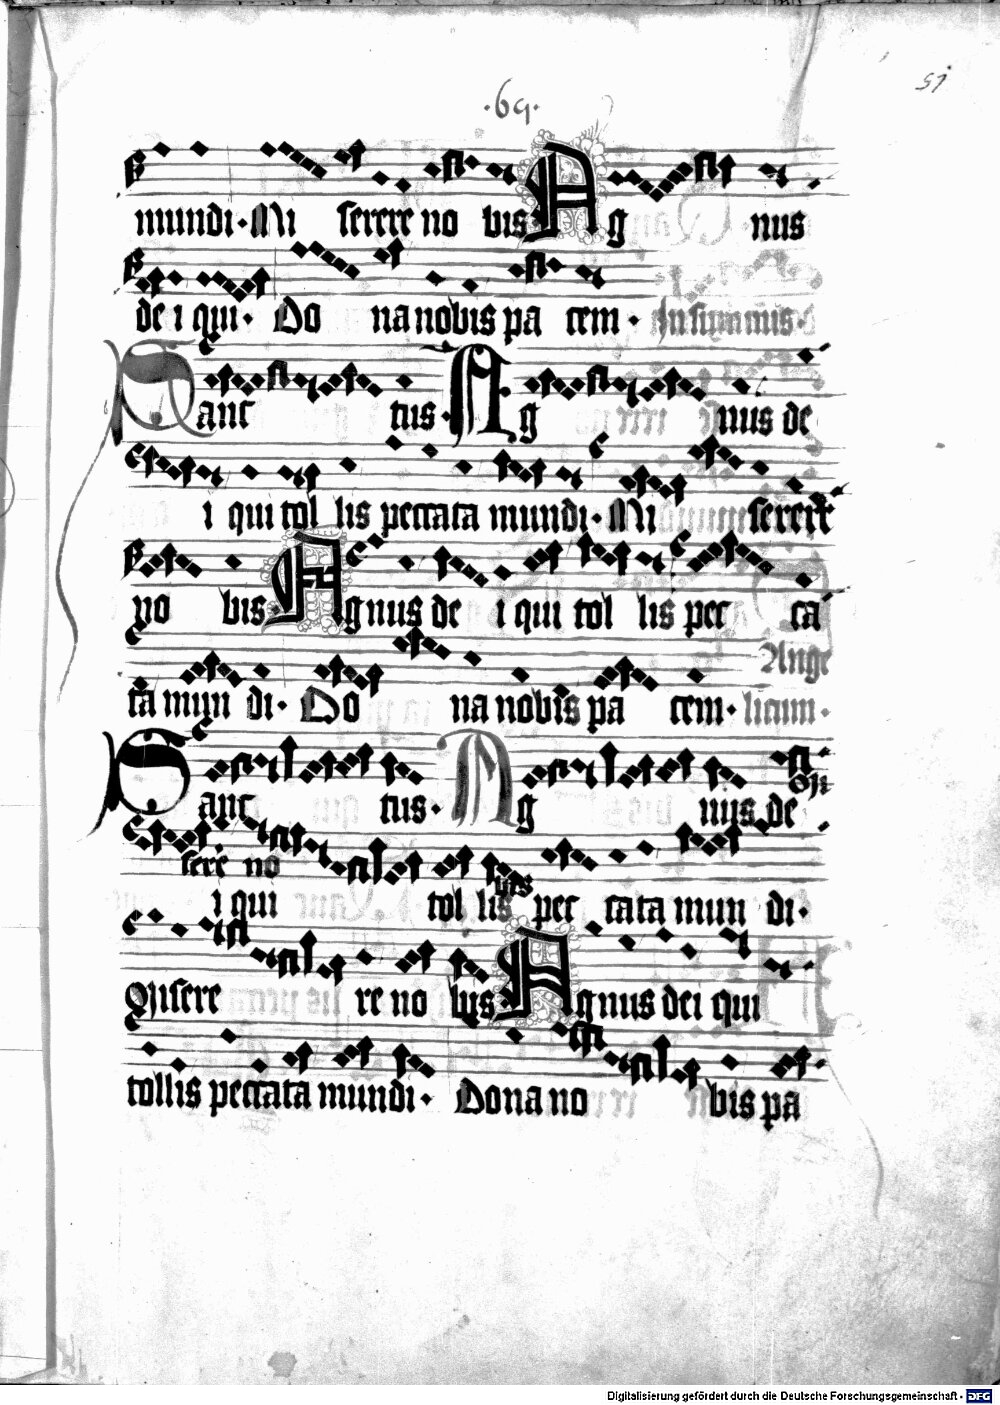 ·69·
51
mundi· Mi serere no bis Ag nus
de i qui· Do na nobis pa cem· In summis·
Sanc tus· Ag nus de
i qui tol lis peccata mundi· Mi serere
no bis· Agnus de i qui tol lis pec ca
Ange
ta mun di· Do na nobis pa cem· licum·
Sanc tus· Ag nus de
Mi
sere no bis
i qui tol lis pec cata mun di·
Misere re no bis· Agnus dei qui
tollis peccata mundi· Dona no bis pa
Digitalisierung gefördert durch die Deutsche Forschungsgemeinschaft - DFG